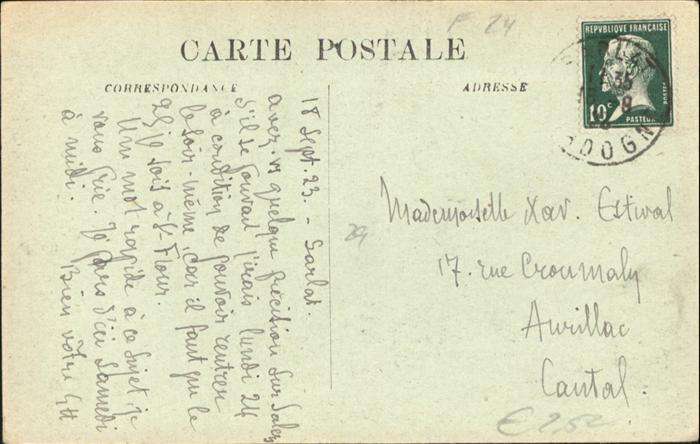 F 24
CARTE POSTALE
CORRESPONDANCE
ADRESSE
REPUBLIQUE FRANÇAISE
10c
POSTES
PASTEUR
DOGN
18 Sept. 23. - Sarlat.
avez-vs quelque précision sur Salers
s'il se pouvait j'irais lundi 24
à condition de pouvoir rentrer
le soir-même, car il faut que le
25 je sois à St Flour.
Un mot rapide à ce sujet, je
vous prie. Je pars d'ici Samedi
à midi.
Bien vôtre
29
Mademoiselle Xav. Estival
17. rue Croumaly
Aurillac
Cantal.